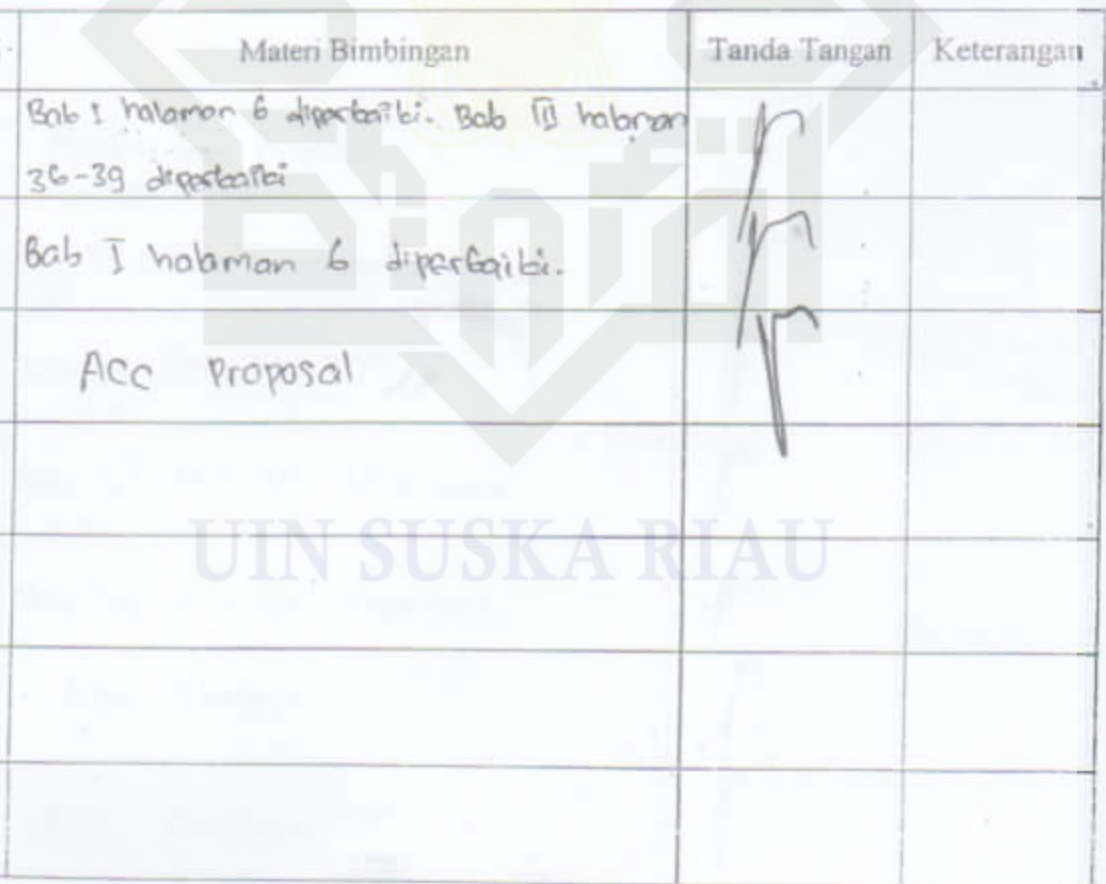 Materi Bimbingan Tanda Tangan Keterangan
Bab I halaman 6 diperbaiki. Bab halaman
36-39 diperbaiki
Bab I halaman 6 diperbaiki.
ACC Proposal
UIN SUSKA RIAU